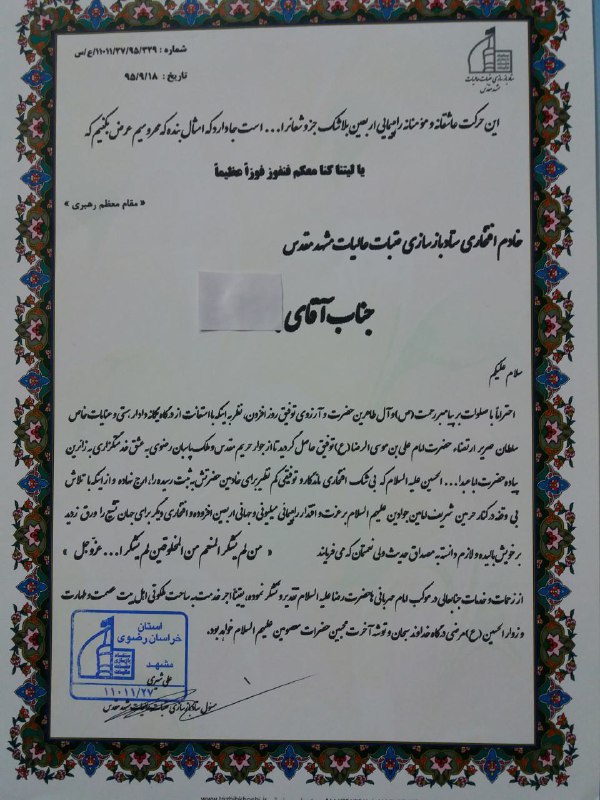 شماره : ۱۱۰۱۱/۲۷/۹۵/۳۲۹/ع/س
تاریخ : ۹۵/۹/۱۸
ستاد بازسازی عتبات عالیات
مشهد مقدس
این حرکت عاشقانه و مؤمنانه راهپیمایی اربعین بلاشک جزو شعائر ا... است جا دارد که امثال بنده که محرومیم عرض بکنیم که
یا لیتنا کنا معکم فنفوز فوزاً عظیماً
« مقام معظم رهبری »
خادم افتخاری ستاد بازسازی عتبات عالیات مشهد مقدس
جناب آقای
سلام علیکم
احتراماً با صلوات بر پیامبر رحمت (ص) و آل طاهرین حضرت و آرزوی توفیق روز افزون، نظر به اینکه با استعانت از درگاه یگانه دادار هستی و عنایات خاص
سلطان سریر ارتضاء، حضرت امام علی بن موسی الرضا (ع) توفیق حاصل گردید تا از جوار حریم مقدس و ملک پاسبان رضوی به عشق خدمتگزاری به زائرین
پیاده حضرت اباعبدا... الحسین علیه السلام که بی شک افتخاری ماندگار و توفیقی کم نظیر برای خادمین حضرتش به ثبت رسیده را، ارج نهاده و از اینکه با تلاش
بی وقفه در کنار حرمین شریف امامین جوادین علیهم السلام بر عزت و اقتدار راهپیمایی میلیونی و جهانی اربعین افزوده و افتخاری دیگر برای جهان تشیع را ورق زدید
بر خویش بالیده و لازم دانسته به مصداق حدیث ولی نعمتمان که می فرمایند « من لم یشکر المنعم من المخلوقین لم یشکر ا... عزوجل »
از زحمات و خدمات جنابعالی در موکب امام مهربانی ها حضرت رضا علیه السلام تقدیر و تشکر نموده، یقیناً اجر خدمت به ساحت ملکوتی اهل بیت عصمت و طهارت
و زوار الحسین (ع) مرضی درگاه خداوند سبحان و توشه آخرت محبین حضرات معصومین علیهم السلام خواهد بود.
استان
خراسان رضوی
ستاد
بازسازی
عتبات
عالیات
مشهد
۱۱۰۱۱/۲۷
علی شیری
مسئول ستاد بازسازی عتبات عالیات مشهد مقدس